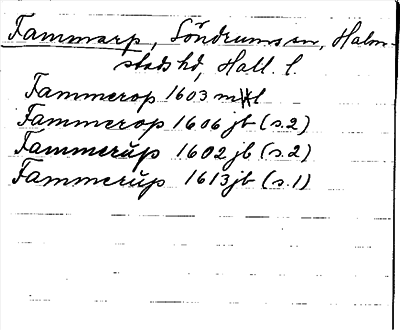 Fammarp, Söndrums sn, Halm-
stads hd, Hall. l.
Fammerop 1603 mtl
Fammerop 1606 jb (s.2)
Fammerŭp 1602 jb (s.2)
Fammerŭp 1613 jb (s.1)